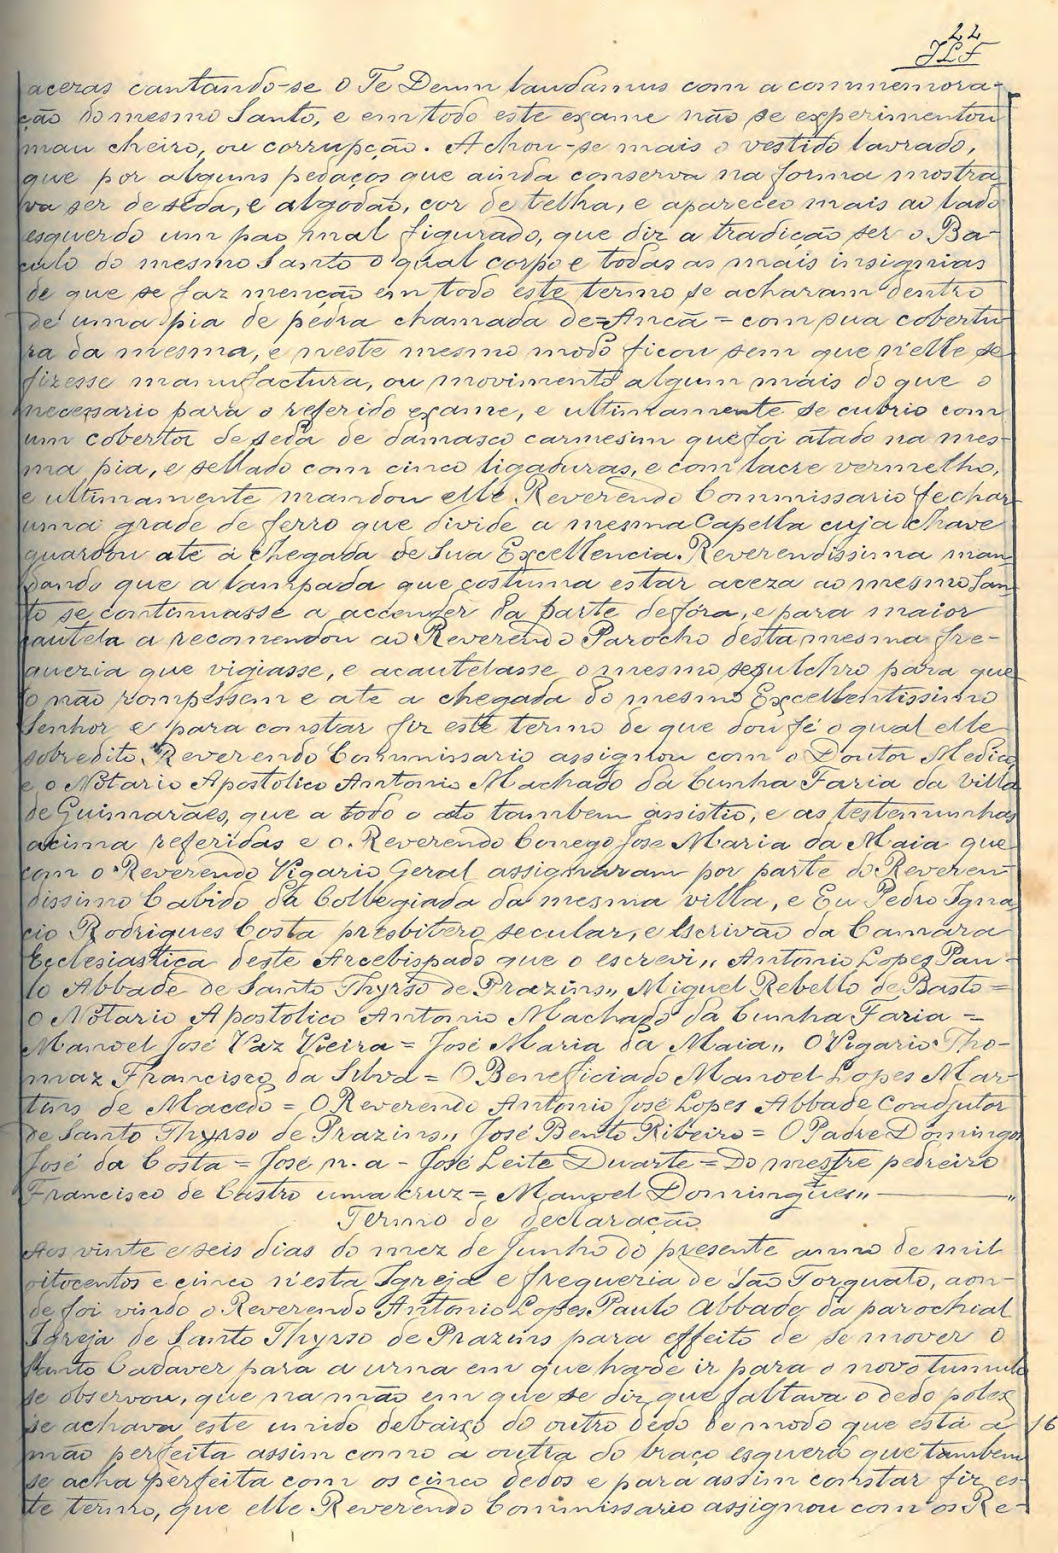 22
JLF
aceras cantando-se o Te Deum laudamus com a commemora-
ção do mesmo Santo, e em todo este exame não se experimentou
mau cheiro, ou corrupção. Achou-se mais o vestido lavrado,
que por alguns pedaços que ainda conserva na forma mostra-
va ser de sêda, e algodão, cor de telha, e apareceo mais ao lado
esquerdo um pao mal figurado, que diz a tradição ser o Ba-
culo do mesmo Santo o qual corpo e todas as mais insignias
de que se faz menção em todo este termo se acharam dentro
de uma pia de pedra chamada de=Ancã=com sua cobertu-
ra da mesma, e neste mesmo modo ficou sem que n'elle se
fizesse manufactura, ou movimento algum mais do que o
necessario para o referido exame, e ultimamente se cubrio com
um cobertor de seda de damasco carmesim que foi atado na mes-
ma pia, e sellado com cinco ligaduras, e com lacre vermelho,
e ultimamente mandou elle Reverendo Commissario fechar
uma grade de ferro que divide a mesma Capella cuja chave
guardou até á chegada de Sua Excellencia Reverendissima man-
dando que a lampada que costuma estar aceza ao mesmo San-
to se continuasse a accender da parte de fóra, e para maior
cautela a recomendou ao Reverendo Parocho desta mesma fre-
gueria que vigiasse, e acautelasse o mesmo sepulchro para que
o não rompessem e até a chegada do mesmo Excellentissimo
Senhor e para constar fiz este termo de que dou fé o qual elle
sobredito Reverendo Commissario assignou com o Doutor Medico
e o Notario Apostolico Antonio Machado da Cunha Faria da Villa
de Guimarães, que a todo o ato tambem assistio, e as testemunhas
acima referidas e o Reverendo Conego José Maria da Maia que
com o Reverendo Vigario Geral assignaram por parte do Reveren-
dissimo Cabido da Collegiada da mesma villa, e Eu Pedro Igna-
cio Rodrigues Costa presbitero secular, e Escrivão da Camara
Ecclesiastica deste Arcebispado que o escrevi,, Antonio Lopes Pau-
lo Abbade de Santo Thyrso de Prazins,, Miguel Rebello de Basto=
O Notario Apostolico Antonio Machado da Cunha Faria=
Manoel José Vaz Vieira= José Maria da Maia,, O Vigario Tho-
maz Francisco da Silva= O Beneficiado Manoel Lopes Mar-
tins de Macedo= O Reverendo Antonio José Lopes Abbade Coadjutor
de Santo Thyrso de Prazins,, José Bento Ribeiro= O Padre Domingos
José da Costa= José n. a- José Leite Duarte= Do mestre pedreiro
Francisco de Castro uma cruz= Manoel Domingues,,
Termo de declaração
Aos vinte e seis dias do mez de Junho do presente anno de mil
oitocentos e cinco n'esta Igreja e fregueria de São Torquato, aon-
de foi vindo o Reverendo Antonio Lopes Paulo Abbade da parochial
Igreja de Santo Thyrso de Prazins para effeito de se mover o
Santo Cadaver para a urna em que hade ir para o novo tumulo
se observou, que na mão em que se diz que faltava o dedo polex
se achava este unido debaixo do outro dedo de modo que está a 16
mão perfeita assim como a outra do braço esquerdo que tambem
se acha perfeita com os cinco dedos e para assim constar fiz es-
te termo, que elle Reverendo Commissario assignou com os Re-